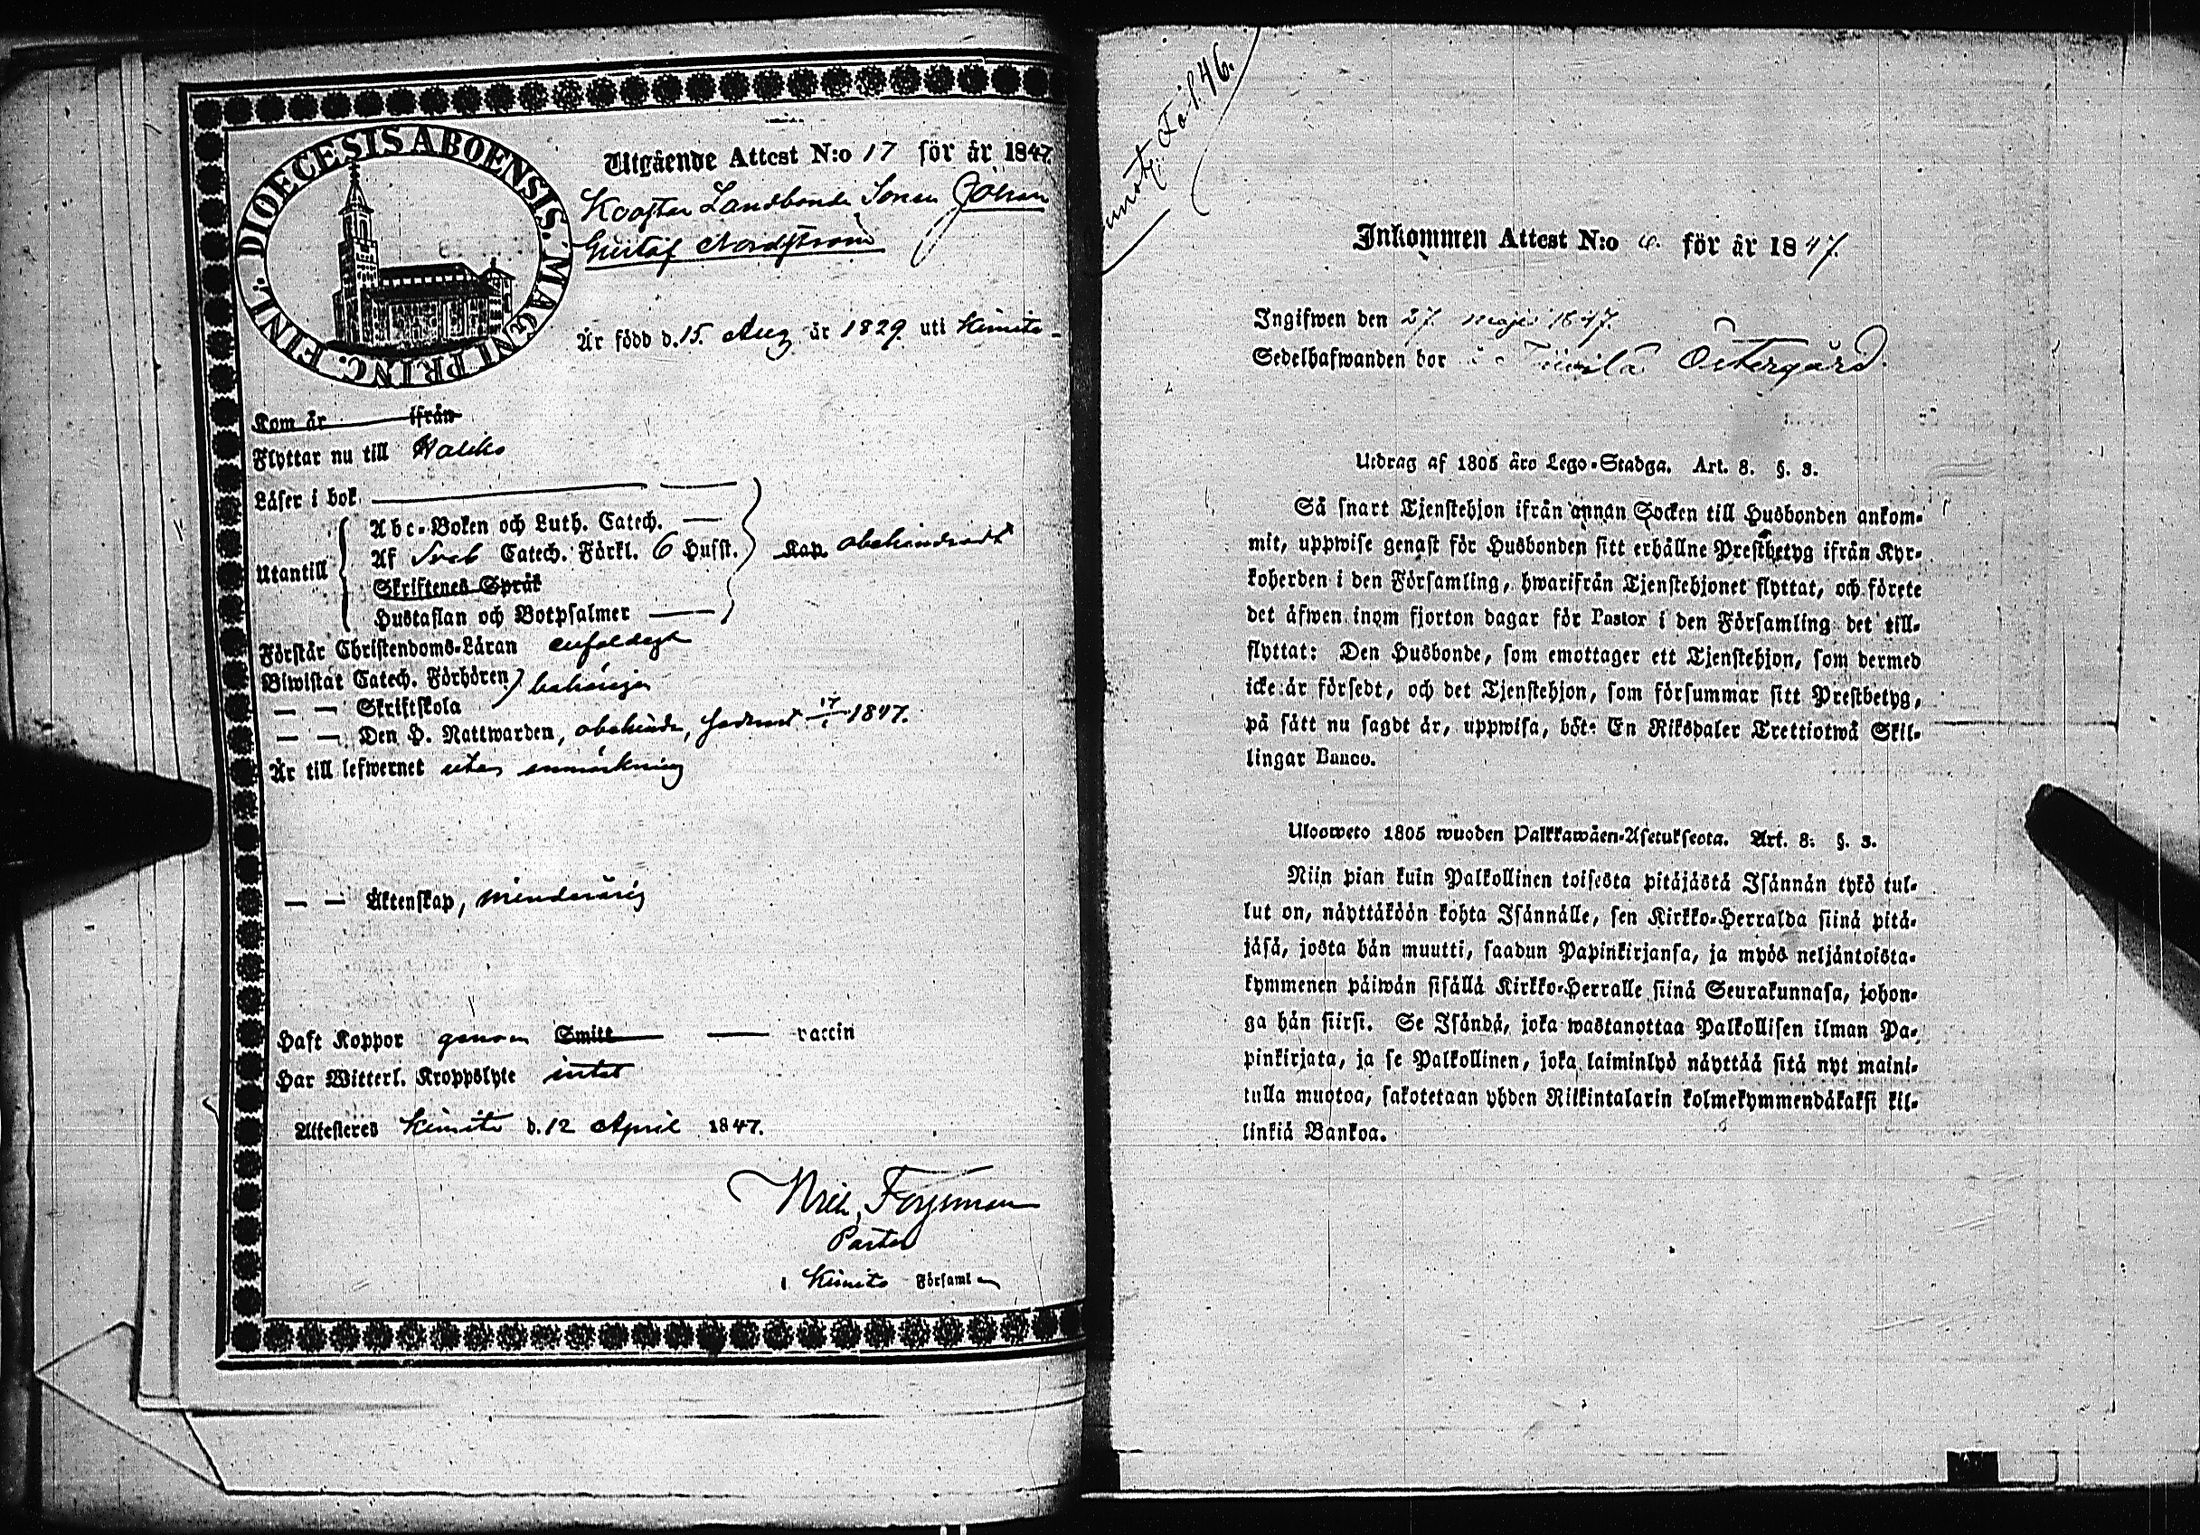 DIOECESIS ABOENSIS. MAGNI PRINC. FINL.
Utgående Attest N:o 17 för år 1847.
Landbonde Sonen Johan
Gustaf Nordström
Är född d. 15 Aug år 1829. uti Kimito
Kom år ifrån
Flyttar nu till Halikko
Läser i bok
Utantill
Abc-Boken och Luth. Catech.
Af Sveb Catech. Förkl. 6 Hufst.
Skriftenes Språk
Hustaflan och Botpsalmer
Kap obehindradt
Förstår Christendoms-Läran enfaldigt
Biwistat Catech. Förhören
— — Skriftskola
behörigen
— — Den H. Nattwarden, obehindr, sednast 17/1 1847.
Är till lefwernet utan anmärkning
— — Äktenskap, minderårig
Haft Koppor genom Smitt vaccin
Har Witterl. Kroppslyte intet
Attesteres Kimito d. 12 April 1847.
Forsman
Pastor
i Kimito Församl
Fol. 46.
Inkommen Attest N:o 6. för år 1847.
Ingifwen den 27 maji 1847.
Sedelhafwanden bor Östergård.
Utdrag af 1805 års Lego-Stadga. Art. 8. §. 3.
Så snart Tjenstehjon ifrån annan Socken till Husbonden ankom-
mit, uppwise genast för Husbonden sitt erhållne Prestbetyg ifrån Kyr-
koherden i den Församling, hwarifrån Tjenstehjonet flyttat, och förete
det äfwen inom fjorton dagar för Pastor i den Församling det till-
flyttat: Den Husbonde, som emottager ett Tjenstehjon, som dermed
icke är försedt, och det Tjenstehjon, som försummar sitt Prestbetyg,
på sätt nu sagdt är, uppwisa, böte En Riksdaler Trettiotwå Skil-
lingar Banco.
Ulosweto 1805 wuoden Palkkawäen-Asetuksesta. Art. 8. §. 3.
Niin pian kuin Palkollinen toisesta pitäjästä Isännän tykö tul-
lut on, näyttäköön kohta Isännälle, sen Kirkko-Herralda siinä pitä-
jäsä, josta hän muutti, saadun Papinkirjansa, ja myös neljäntoista-
kymmenen päiwän sisällä Kirkko-Herralle siinä Seurakunnasa, johon-
ga hän siirsi. Se Isändä, joka wastanottaa Palkollisen ilman Pa-
pinkirjata, ja se Palkollinen, joka laiminlyö näyttää sitä nyt maini-
tulla muotoa, sakotetaan yhden Riikintalarin kolmekymmendäkaksi kil-
linkiä Bankoa.